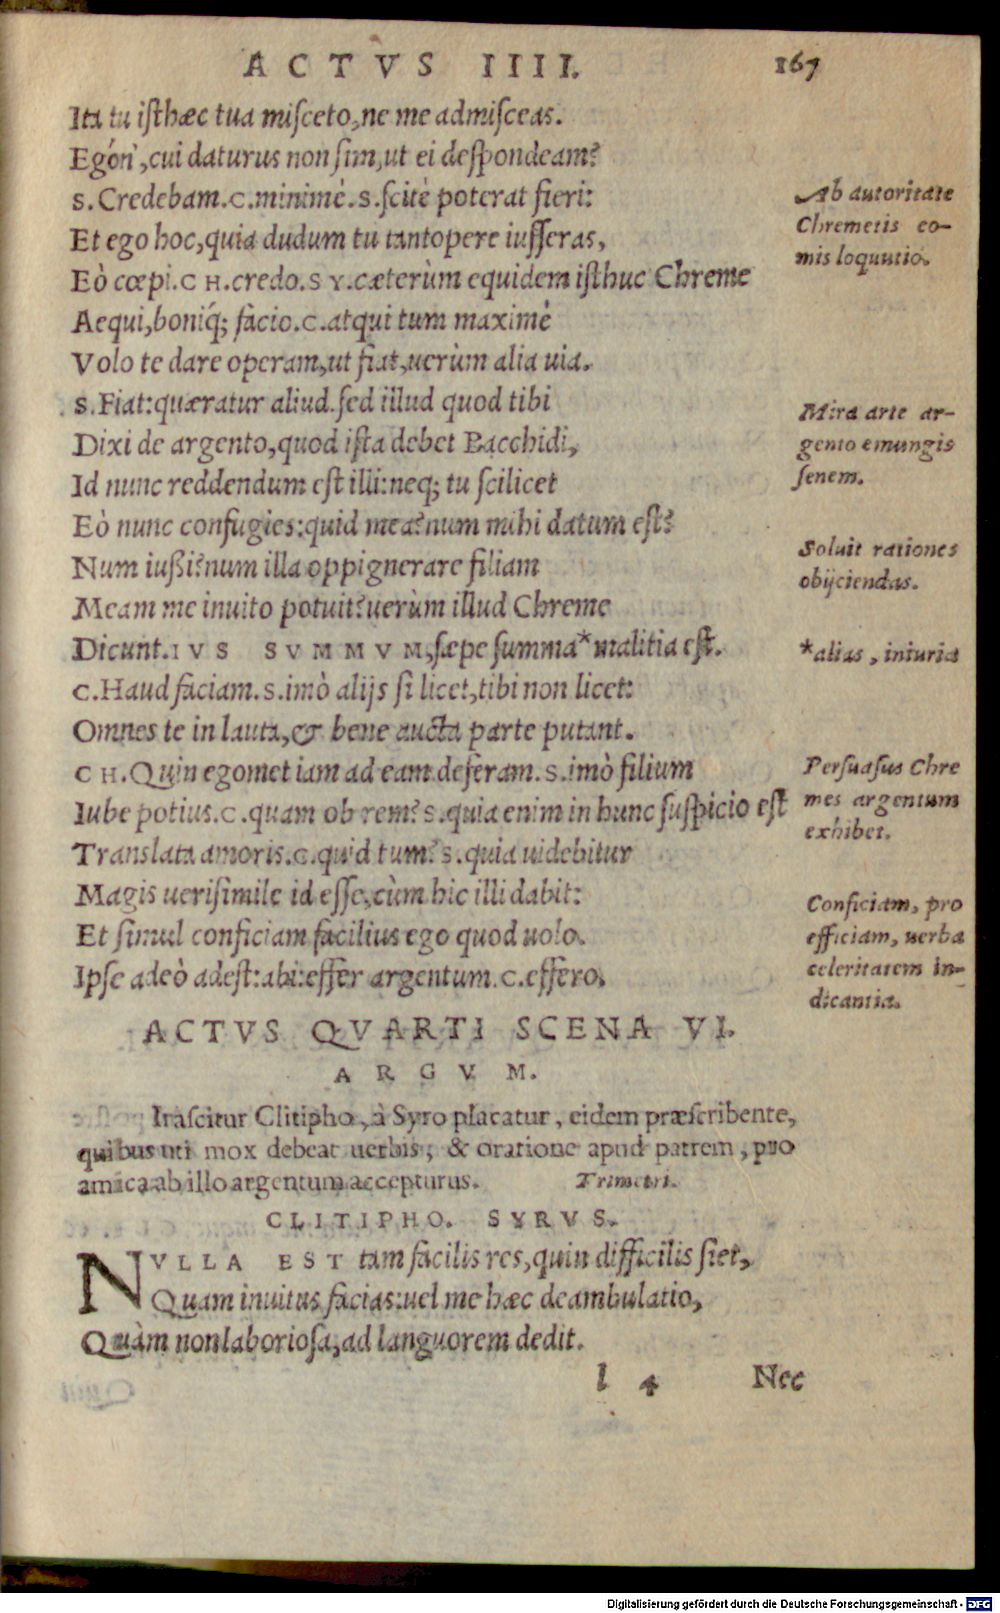 ACTVS IIII. 167
Ita tu isthæc tua misceto, ne me admisceas.
Egón', cui daturus non sim, ut ei despondeam?
S. Credebam. C. minimè. S. scitè poterat fieri:
Et ego hoc, quia dudum tu tantopere iusseras,
Eò cœpi. CH. credo. SY. cæterùm equidem isthuc Chreme
Aequi, boniq́; facio. C. atqui tum maximè
Volo te dare operam, ut fiat, uerùm alia uia.
S. Fiat: quæratur aliud. sed illud quod tibi
Dixi de argento, quod ista debet Bacchidi,
Id nunc reddendum est illi: neq; tu scilicet
Eò nunc confugies: quid mea? num mihi datum est?
Num iußi? num illa oppignerare filiam
Meam me inuito potuit? uerùm illud Chreme
Dicunt. IVS SVMMVM, sæpe summa* malitia est.
C. Haud faciam. S. imò alijs si licet, tibi non licet:
Omnes te in lauta, & bene aucta parte putant.
CH. Quin egomet iam ad eam deferam. S. imò filium
Iube potius. C. quam ob rem? S. quia enim in hunc suspicio est
Translata amoris. C. quid tum? S. quia uidebitur
Magis uerisimile id esse, cùm hic illi dabit:
Et simul conficiam facilius ego quod uolo.
Ipse adeò adest: abi: effer argentum. C. effero.
Ab autoritate
Chremetis co-
mis loquutio.
Mira arte ar-
gento emungis
senem.
Soluit rationes
obijciendas.
*alias, iniuria
Persuasus Chre
mes argentum
exhibet.
Conficiam, pro
efficiam, uerba
celeritatem in-
dicantia.
ACTVS QVARTI SCENA VI.
ARGVM.
Irascitur Clitipho, à Syro placatur, eidem præscribente,
quibus uti mox debeat uerbis, & oratione apud patrem, pro
amica ab illo argentum accepturus. Trimetri.
CLITIPHO. SYRVS.
NVLLA EST tam facilis res, quin difficilis siet,
Quam inuitus facias: uel me hæc deambulatio,
Quàm non laboriosa, ad languorem dedit.
l 4 Nec
Digitalisierung gefördert durch die Deutsche Forschungsgemeinschaft - DFG